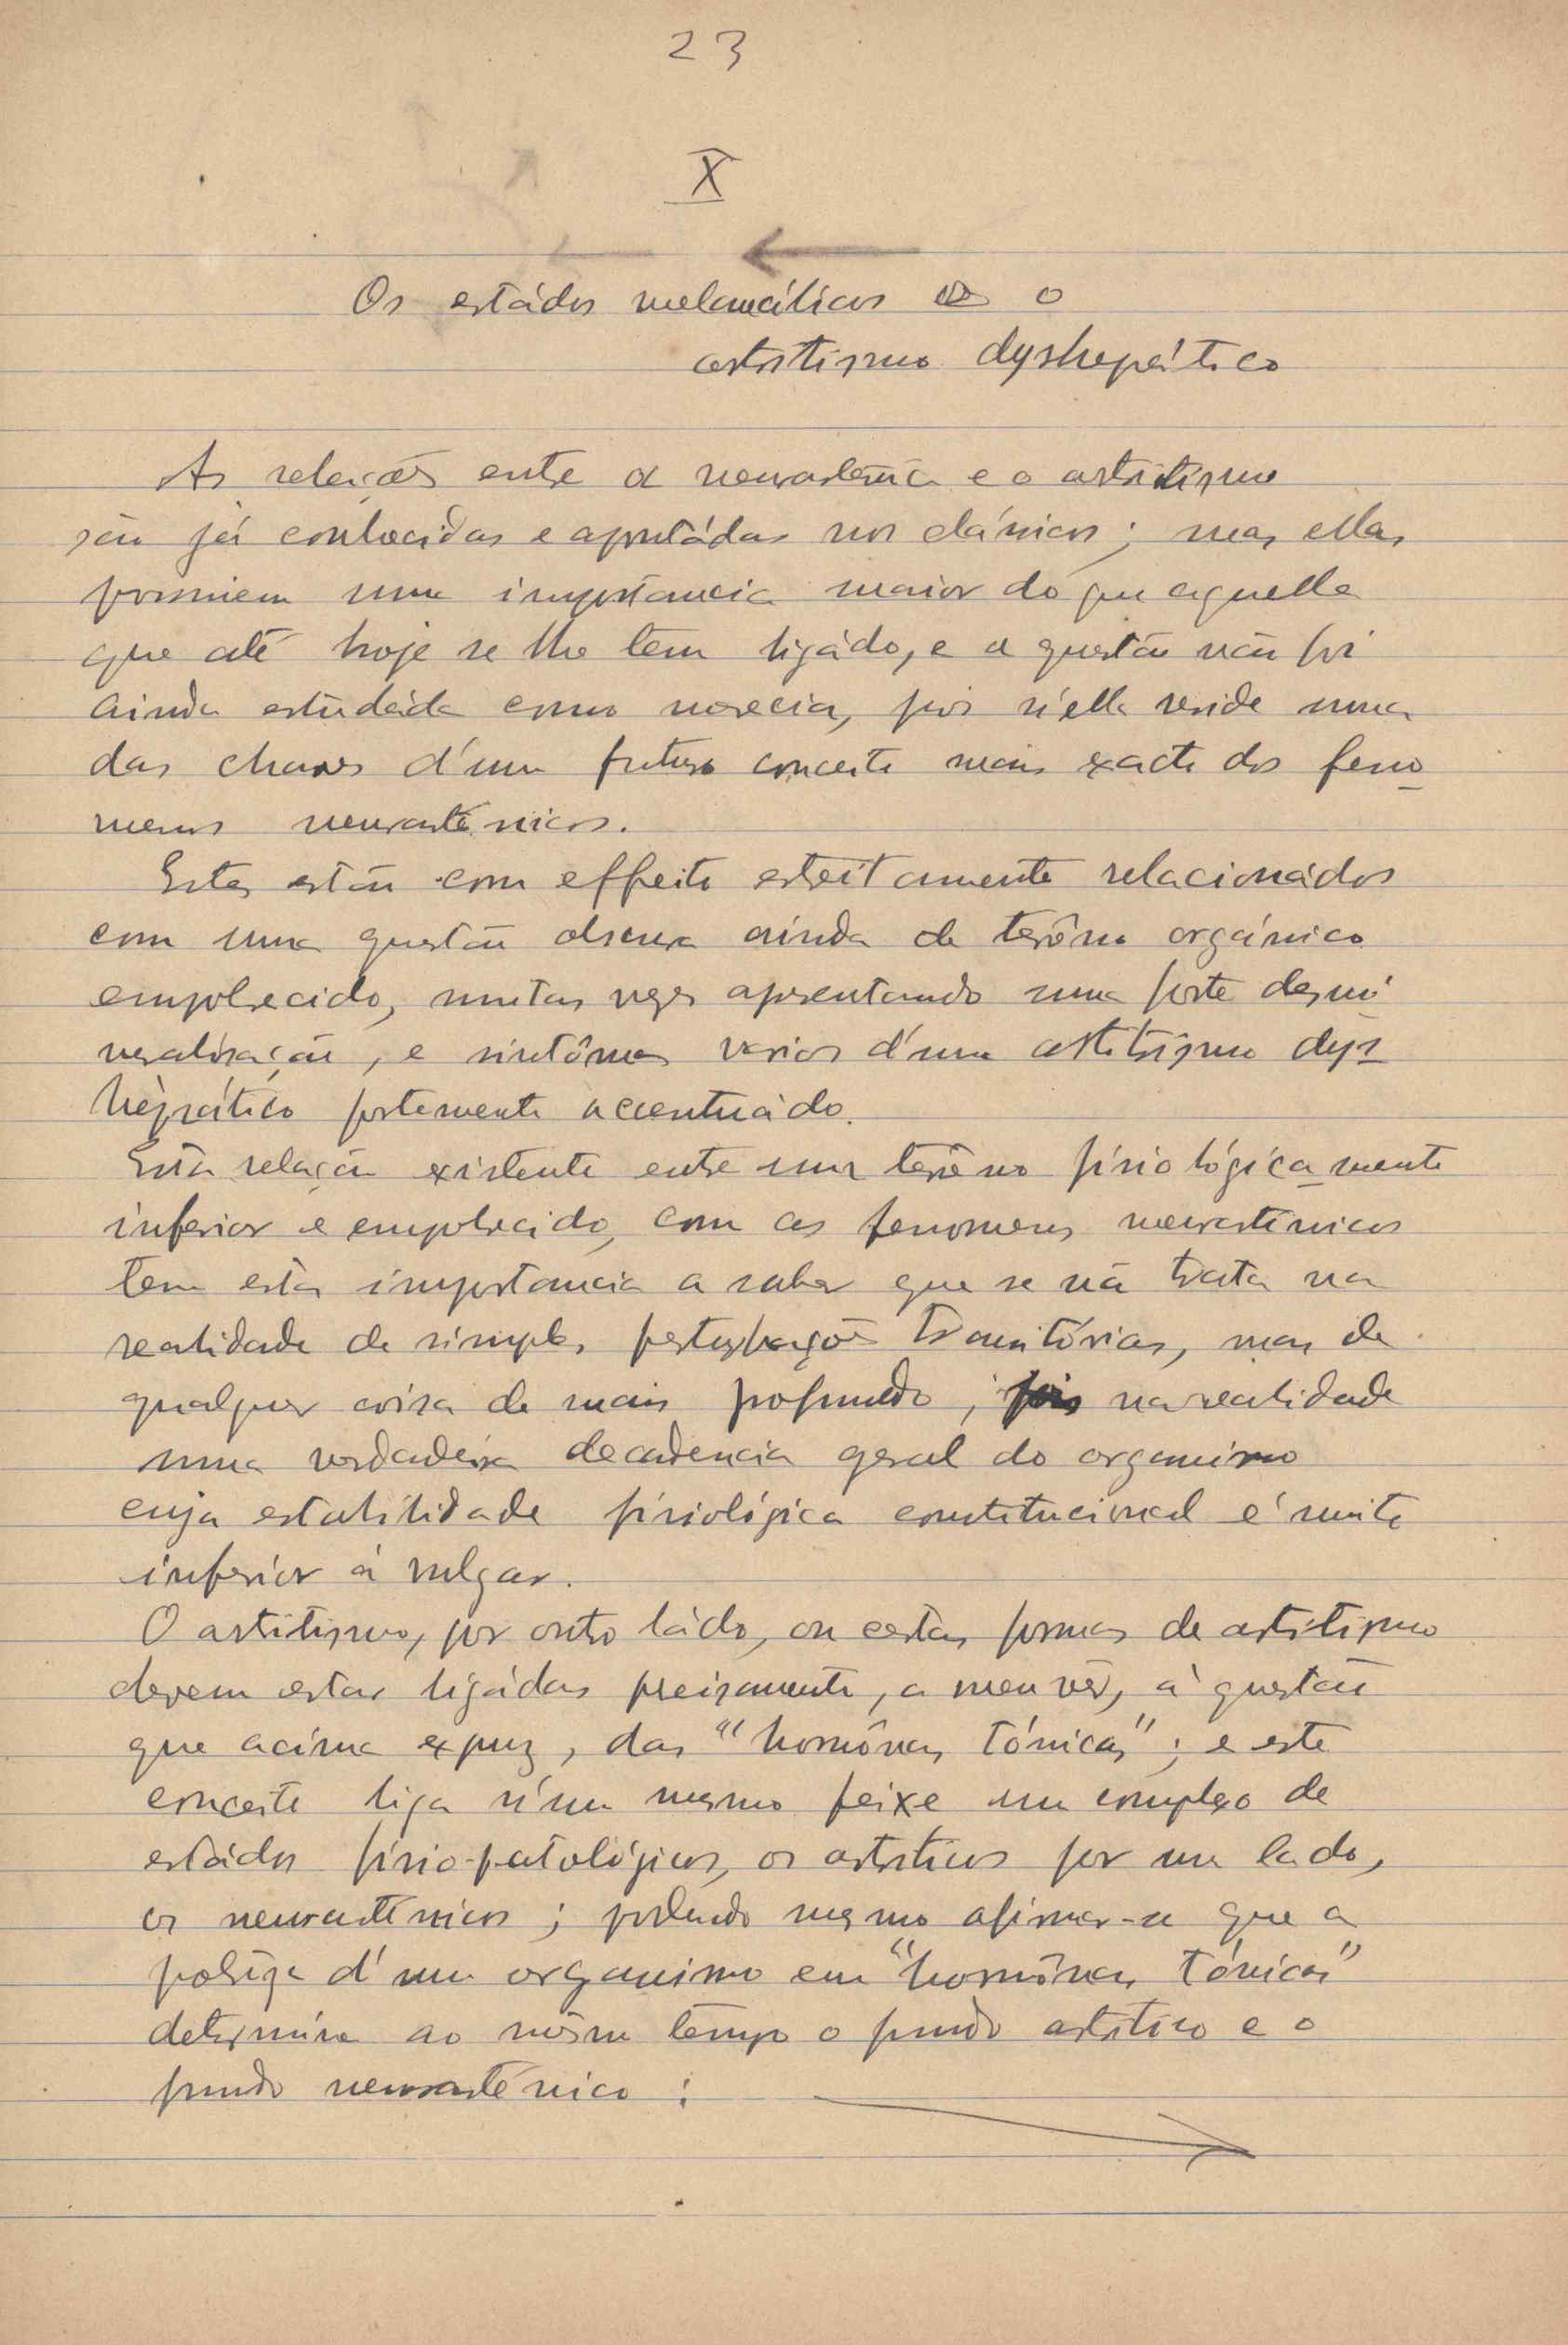 23
X
Os estádos melancólicos e o
artritismo dyshepático
As relações entre a neurastenia e o artritismo
são já conhecidas e apontádas nos clássicos; mas ellas
possuiem uma importancia maior do que aquella
que até hoje se lhe tem ligádo, e a questão não foi
ainda estudáda como merecia, pois n'ella reside uma
das chaves d'um futuro conceito mais exacto dos feno
menos neurasténicos.
Estes estão com effeito estreitamente relacionádos
com uma questão obscura ainda de terêno orgánico
empobrecido, muitas vezes apresentando uma forte desmi
neralisação, e sintômas varios d'um artritismo dys
hepático fortemente accentuádo.
Esta relação existente entre um terêno fisiológicamente
inferior e empobrecido, com os fenomenos neurasténicos
tem esta importancia a saber que se não trata na
realidade de simples perturbações transitórias, mas de
qualquer coisa de mais profundo, pois na realidade
uma verdadeira decadencia geral do organismo
cuja estabilidade fisiológica constitucional é muito
inferior á vulgar.
O artritismo, por outro ládo, ou certas formas de artritismo
devem estar ligádas precisamente, a meu vêr, á questão
que acima expuz, das "hormônas tónicas"; e este
conceito liga n'um mesmo feixe um complexo de
estádos fisio-patológicos, os artriticos por um lado,
os neurasténicos; podendo mesmo afirmar-se que a
pobreza d'um organismo em "hormônas tónicas"
determina ao mesmo tempo o fundo artritico e o
fundo neurasténico: